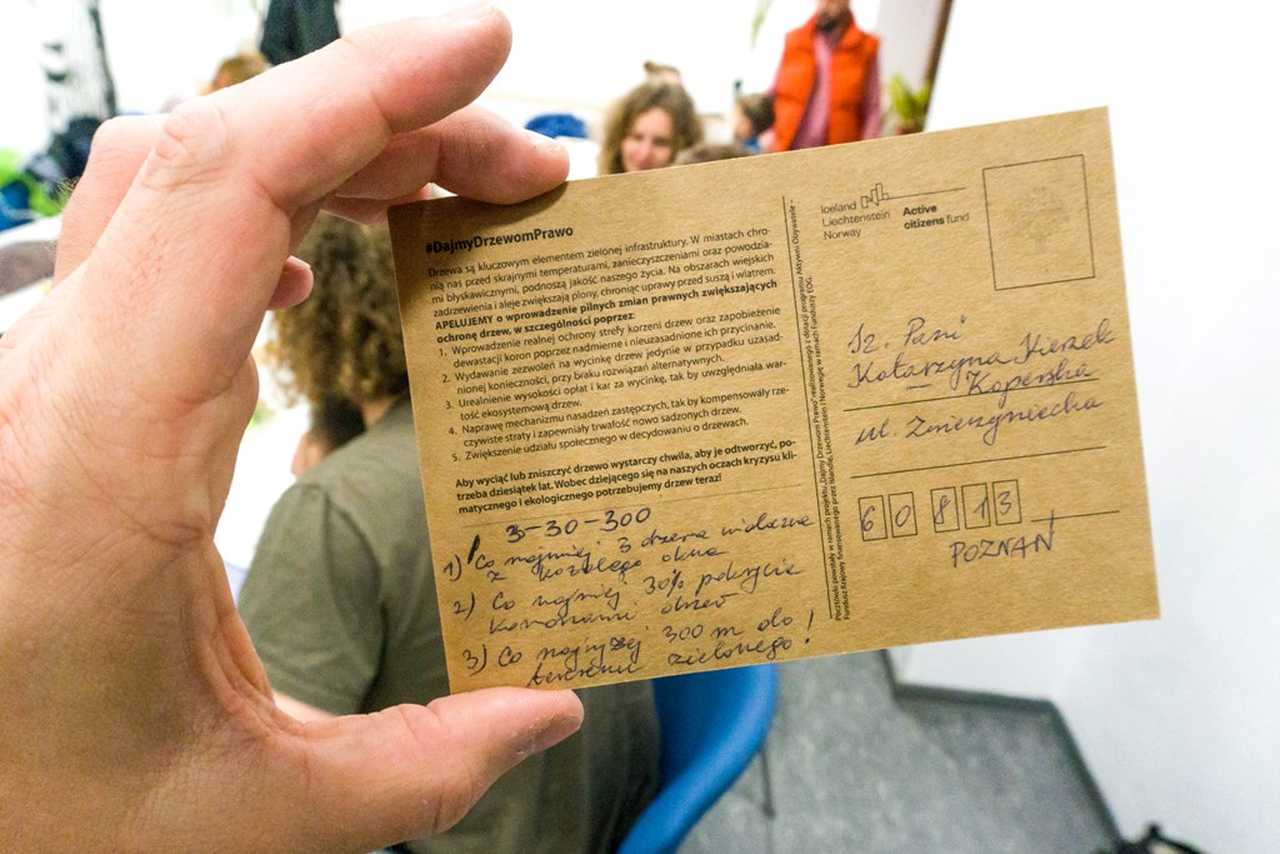 #DajmyDrzewomPrawo
Drzewa są kluczowym elementem zielonej infrastruktury. W miastach chro-
nią nas przed skrajnymi temperaturami, zanieczyszczeniami oraz powodzia-
mi błyskawicznymi, podnoszą jakość naszego życia. Na obszarach wiejskich
zadrzewienia i aleje zwiększają plony, chroniąc uprawy przed suszą i wiatrem.
APELUJEMY o wprowadzenie pilnych zmian prawnych zwiększających
ochronę drzew, w szczególności poprzez:
1. Wprowadzenie realnej ochrony strefy korzeni drzew oraz zapobieżenie
dewastacji koron poprzez nadmierne i nieuzasadnione ich przycinanie.
2. Wydawanie zezwoleń na wycinkę drzew jedynie w przypadku uzasad-
nionej konieczności, przy braku rozwiązań alternatywnych.
3. Urealnienie wysokości opłat i kar za wycinkę, tak by uwzględniała war-
tość ekosystemową drzew.
4. Naprawę mechanizmu nasadzeń zastępczych, tak by kompensowały rze-
czywiste straty i zapewniały trwałość nowo sadzonych drzew.
5. Zwiększenie udziału społecznego w decydowaniu o drzewach.
Aby wyciąć lub zniszczyć drzewo wystarczy chwila, aby je odtworzyć, po-
trzeba dziesiątek lat. Wobec dziejącego się na naszych oczach kryzysu kli-
matycznego i ekologicznego potrzebujemy drzew teraz!
3-30-300
1) Co najmniej 3 drzewa widoczne
z każdego okna
2) Co najmniej 30% pokrycie
koronami drzew
3) Co najwyżej 300 m do
terenu zielonego!
Pocztówki powstały w ramach projektu „Dajmy Drzewom Prawo" realizowanego z dotacji programu Aktywni Obywatele –
Fundusz Krajowy finansowanego przez Islandię, Liechtenstein i Norwegię w ramach Funduszy EOG.
Iceland
Liechtenstein
Norway
Active
citizens fund
Sz. Pani
Katarzyna Kierzek
Koperska
ul.
60 813
POZNAŃ